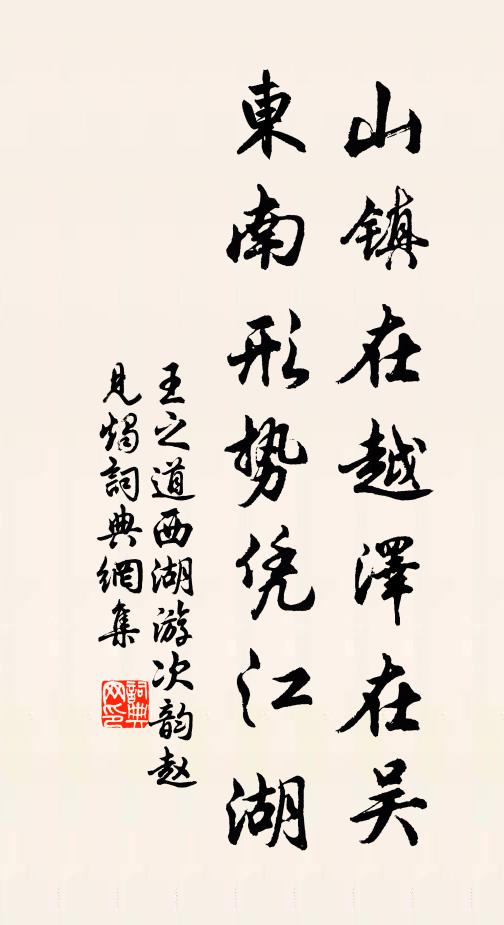 山镇在越澤在吴
東南形势凭江湖
王之道西湖游次韵赵
見燭詞典網集
詞典網印